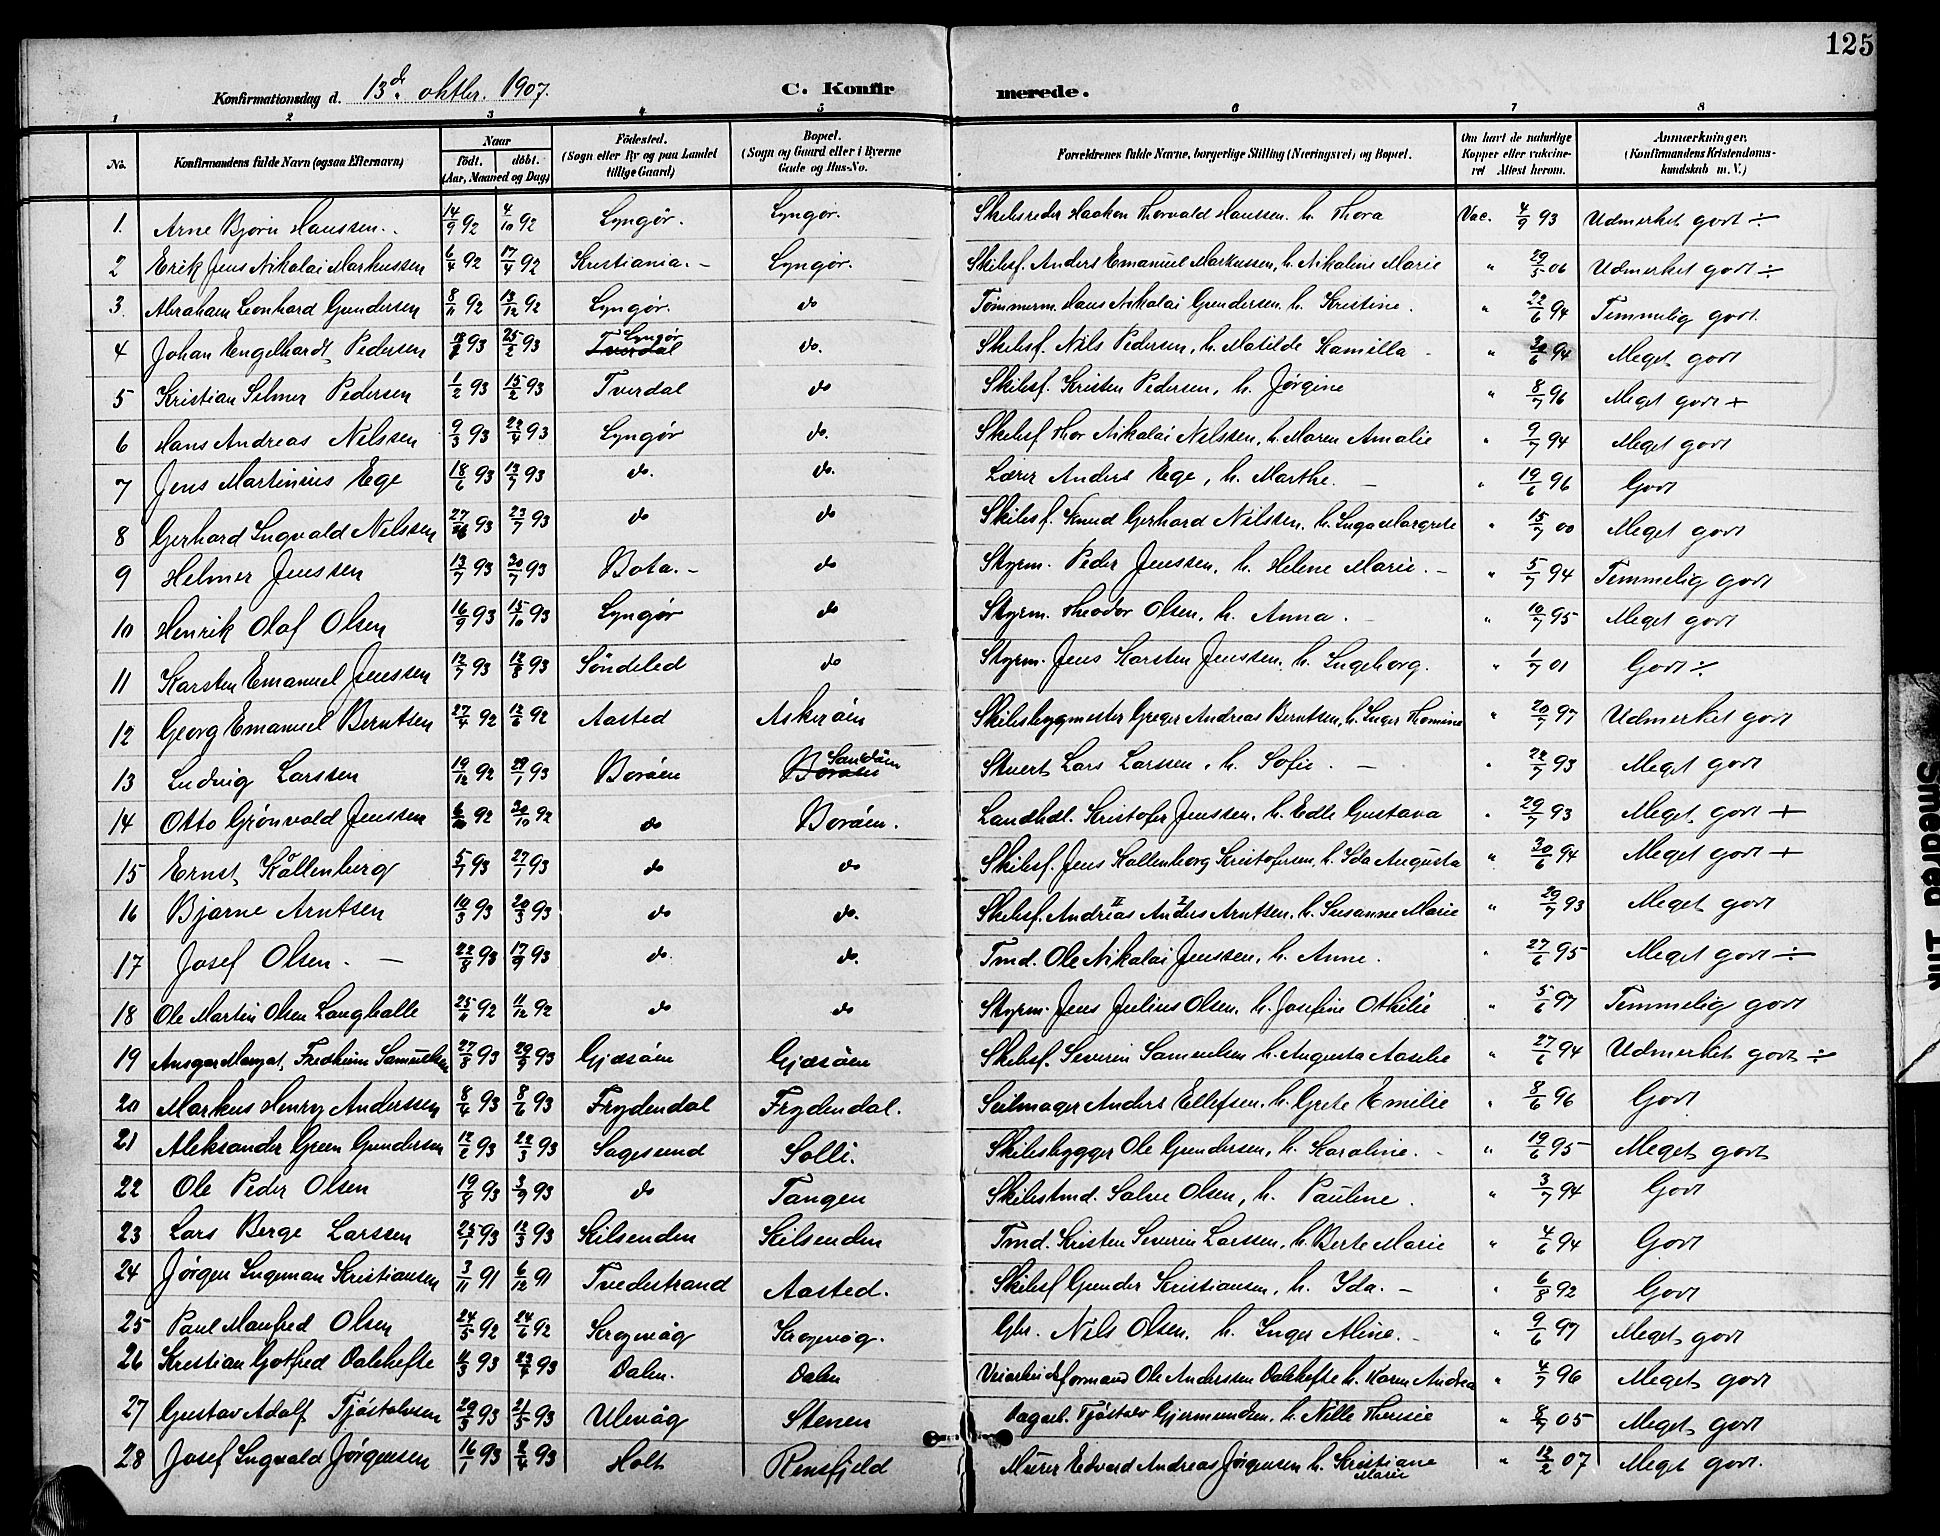 125
Konfirmationsdag d. 13d. oktbr. 1907. C. Konfirmerede.
1 2 3 4 5 6 7 8
No. Konfirmandens fulde Navn (ogsaa Efternavn) Naar födt. döbt. (Aar, Maaned og Dag) Födested. (Sogn eller By og paa Landet tillige Gaard) Bopæl. (Sogn og Gaard eller i Byerne Gade og Hus-No. Forældrenes fulde Navne, borgerlige Stilling (Næringsvei) og Bopæl. Om havt de naturlige Kopper eller vakcineret Attest herom. Anmærkninger. (Konfirmandens Kristendomskundskab m. V.)
1. Arne Bjørn Hanssen. 14/9 92 4/10 92 Lyngør. Lyngør. Skibsreder Haakon Thorvald Hanssen. h. Thora Vac. 4/9 93 Udmerket godt ÷
2 Erik Jens Nikolai Markussen 6/4 92 17/4 92 Kristiania. - Lyngør. Skibsf. Anders Emanuel Markussen, h. Nikoline Marie " 29/5 06 Udmerket godt ÷
3. Abraham Leonhard Gundersen 8/11 92 13/12 92 Lyngør. do Tømmerm. Hans Nikolai Gundersen. h. Kristine. " 22/6 94 Temmelig godt.
4 Johan Engelhardt Pedersen 93 25/2 93 Tverdal Lyngør do. Skibsf. Nils Pedersen, h. Matilde Kamilla - " 94 Meget godt
5 Kristian Selmer Pedersen 1/2 93 15/2 93 Tverdal do Skibsf. Kristen Pedersen, h. Jørgine " 8/7 96 Meget godt +
6 Hans Andreas Nilssen 9/3 93 22/4 93 Lyngør do. Skibsf. Thor Nikolai Nilssen, h. Maren Amalie " 9/7 94 Meget godt
7 Jens Martinius Ege 18/6 93 13/7 93 do. do. Lærer Anders Ege, h. Marthe. - " 19/6 96 Godt
8 Gerhard Ingvald Nilssen 93 23/7 93 do do Skibsf. Knud Gerhard Nilssen. h. Inga Margrete " 15/7 00 Meget godt
9 Helmer Jenssen 13/7 93 30/7 93 Bota. - do Styrm. Peder Jenssen, h. Helene Marie. - " 5/7 94 Temmelig godt
10 Henrik Olaf Olsen 16/9 93 15/10 93 Lyngør do Styrm. Theodor Olsen, h. Anna. - " 10/7 95 Meget godt
11 Karsten Emanuel Jenssen 12/7 93 12/8 93 Söndeled do Styrm. Jens Karsten Jenssen, h. Ingeborg. " 1/7 01 Godt ÷
12 Georg Emanuel Berntsen 27/4 92 12/6 92 Aasted Askeröen Skibsbygmester Greger Andreas Berntsen, h. Inger Thomine " 20/7 97 Udmerket godt
13 Ludvig Larssen 19/12 92 93 Boröen Sandöen Stuert Lars Larssen, h. Sofie. - " 22/7 93 Meget godt
14 Otto Grönvold Jenssen 92 30/10 92 do Boröen. Landhdl. Kristofer Jenssen, h. Edle Gustava " 29/7 93 Meget godt +
15 Ernst Kållenberg 5/7 93 27/7 93 do do Skibsf. Jens Kallenborg Kristofersen, h. Ida Augusta " 30/6 94 Meget godt +
16 Bjarne Arntsen 10/3 93 20/3 93 do do. Skibsf. Andreas II Anders I Arntsen. h. Susanne Marie " 29/7 93 Meget godt
17 Josef Olsen. - 22/8 93 17/9 93 do. do. Tmd. Ole Nikolai Jenssen, h. Anne. " 27/6 95 Meget godt ÷
18 Ole Martin Olsen Langballe 25/11 92 11/12 92 do do Styrm. Jens Julius Olsen, h. Josefine Othilie " 5/6 97 Temmelig godt
19 Ansgar Margat. Fredheim Samuelsen 27/8 93 93 Gjæsöen Gjæsöen Skibsf. Severin Samuelsen h. Augusta Aaselie " 27/6 94 Udmerket godt ÷
20 Markus Henry Anderssen 8/4 93 8/6 93 Frydendal Frydendal. Seilmager Anders Ellefsen. h. Grete Emilie " 8/6 96 Godt
21 Aleksander Green Gundersen 93 22/3 93 Sagesund Solli. Skibsbygger Ole Gundersen, h. Karoline. - " 19/6 95 Meget godt
22 Ole Peder Olsen 19/8 93 3/9 93 do Tangen Skibstmd. Salve Olsen, h. Pauline. " 3/7 94 Godt
23 Lars Berge Larssen 25/1 93 12/3 93 Kilsenden Kilsenden Tmd. Kristen Severin Larssen, h. Berte Marie " 4/6 94 Godt
24 Jørgen Ingeman Kristiansen 3/11 91 6/12 91 Tvedestrand Aasted. Skibsf Gunder Kristiansen, h. Ida. - " 6/8 92 Godt
25 Paul Manfred Olsen 24/5 92 24/6 92 Krogevåg Krogevåg. Gbr. Nils Olsen. h. Inger Aline. - " 9/6 97 Meget godt
26 Kristian Gotfred Dalehefte 11/3 93 23/4 93 Dalen. Dalen Veiarbeidsformand Ole Anderssen Dalehefte h. Karen Andrea " 4/7 96 Meget godt
27 Gustav Adolf Tjöstolvsen 29/3 93 21/5 93 Ulevåg Stenen Dagarb. Tjöstolv Gjermundsen, h. Nille Therese " 8/7 05 Meget godt
28 Josef Ingvald Jørgensen 16/1 93 2/4 93 Holt Rensfjeld Murer Edvard Andreas Jørgensen h. Kristiane Marie " 12/2 07 Meget godt.